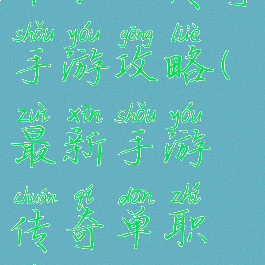 shǒu yóu gōng lüè
手游攻略(
zuì xīn shǒu yóu
最新手游
chuán qí dān zhí
传奇单职